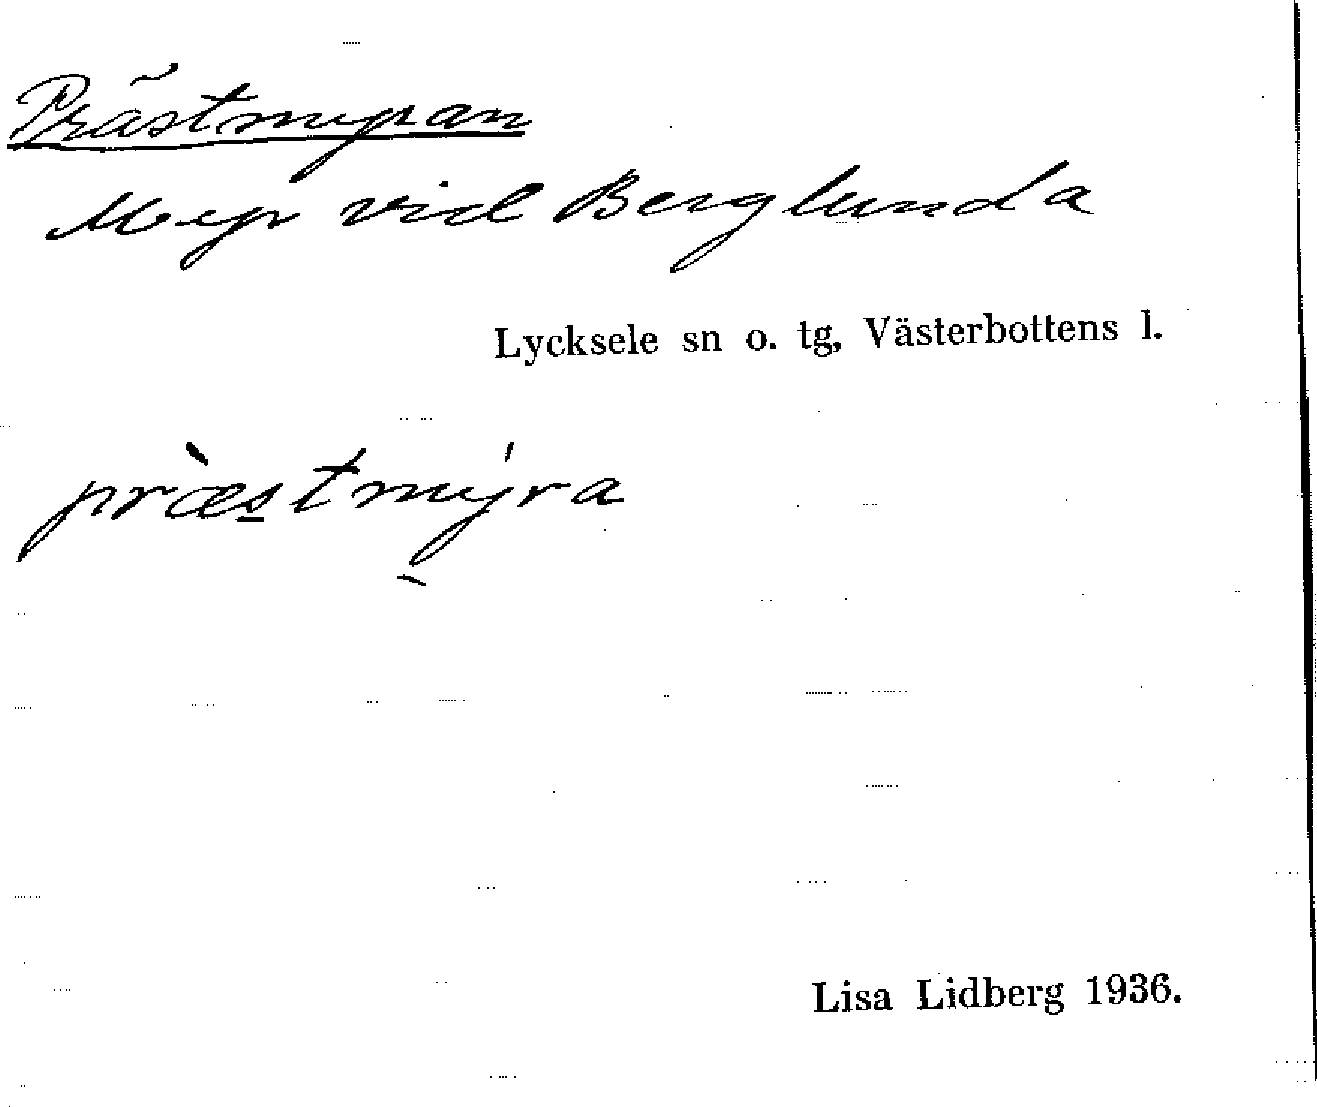 Prästmyran
Myr vid Berglunda
Lycksele sn o. tg, Västerbottens l.
præstmýra
Lisa Lidberg 1936.